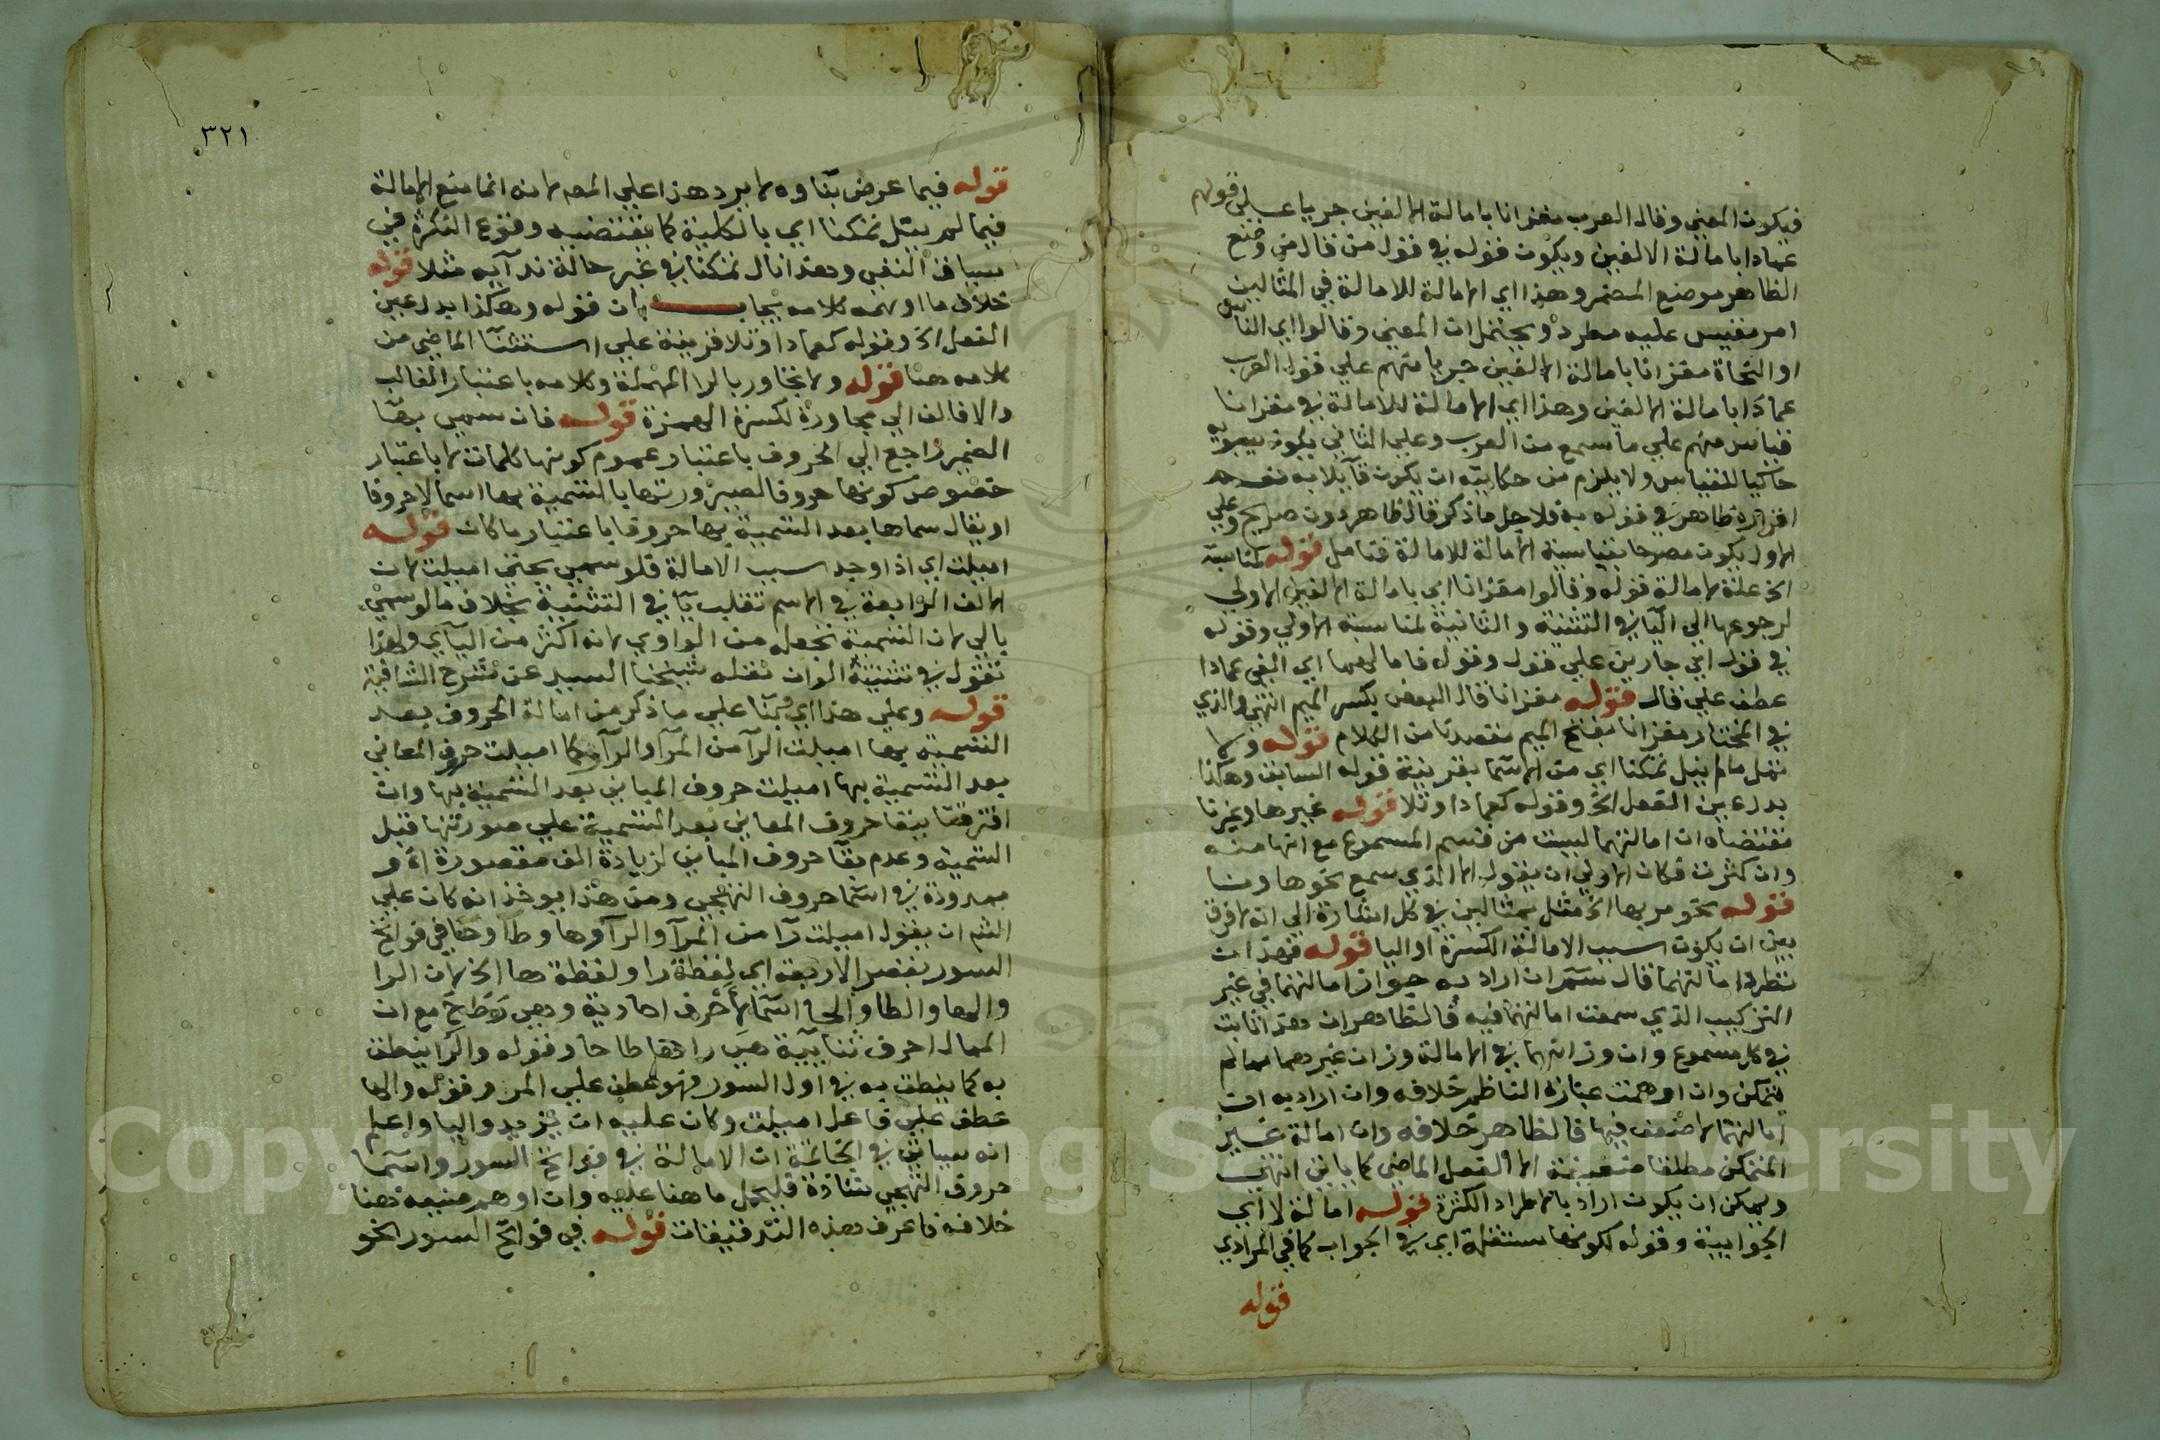 فيكون المعنى وقال العرب مغزانا بامالة الالفين جريا على قولهم
عمادا بامالة الالفين ويكون قوله في قوله من قال من وضع
الظاهر موضع المضمر وهذا اي الامالة للامالة في المثالين
امر مقيس عليه مطرد ويحتمل ان المعنى وقالوا اي الناس
او النحاة مغزانا بامالة الالفين جريا منهم على قول العرب
عمادا بامالة الالفين وهذا اي الامالة للامالة في مغزانا
قياس منهم على ما سمع من العرب وعلى الثاني يكون سيبويه
حاكيا للقياس ولا يلزم من حكايته ان يكون قائلا به نعم
افراده ظاهر في قوله به فلاجل ما ذكر قال ظاهر دون صريح وعلى
الاول يكون مصرحا بقياسية الامالة للامالة فتامل قوله لمناسبة
الخ علة لامالة قوله وقالوا مغزانا اي بامالة الالفين الاولى
لرجوعها الى اليا في التثنية والثانية لمناسبة الاولى وقوله
في قول اي جارين على قول وقوله فامالهما اي الفي عمادا
عطف على قال قوله مغزانا قال البعض بكسر الميم انتهى والذي
في المختار مغزانا بفتح الميم مقصدنا من الكلام قوله ولا
تمل مالم ينل تمكنا اي من الاسما بقرينة قوله السابق وهكذا
بدل عين الفعل الخ وقوله كعمادا وتلا قوله غيرها وغيرنا
مقتضاه ان امالتهما ليست من قسم المسموع مع انها منه
وان كثرت فكان الاولى ان يقول الا الذي سمع نحوها ونا
قوله نحو مر بها الخ مثل بمثالين في كل اشارة الى انه لا فرق
بين ان يكون سبب الامالة الكسرة او اليا قوله فهذان
تطرد امالتهما قال سم ان اراد به جواز امالتهما في غير
التركيب الذي سمعت امالتهما فيه فالظاهر ان هذا ثابت
في كل مسموع وان وزانهما في الامالة وزان غيرهما مما لم
يتمكن وان اوهمت عبارة الناظم خلافه وان اراد به ان
امالتهما لا ضعف فيها فالظاهر خلافه وان امالة غير
المتمكن مطلقا ضعيفة الا الفعل الماضي كما ياتي انتهى
ويمكن ان يكون اراد بالاطراد الكثرة قوله امالة لا اي
الجوابية وقوله لكونها مستقلة اي في الجواب كما في المرادي
قوله
٣٢١
قوله فيما عرض بنا وه لا يرد هذا على المص لانه انما منع الامالة
فيما لم ينل تمكنا اي بالكلية كما يقتضيه وقوع النكرة في
سياق النفي وهذا نال تمكنا في غير حالة ندائه مثلا قوله
خلاف ما اوهمه كلامه يجاب بان قوله وهكذا بدل عين
الفعل الخ وقوله كعمادا وتلا قرينة على استثنا الماضي من
كلامه هنا قوله ولا تجاور بالرا المهملة وكلامه باعتبار الغالب
والا فالف الى مجاورة لكسرة الهمزة قوله فان سمي بها
الضمير راجع الى الحروف باعتبار عموم كونها كلمات لا باعتبار
خصوص كونها حروفا لصيرورتها بالتسمية بها اسما لا حروفا
او يقال سماها بعد التسمية بها حروفا باعتبار ما كان قوله
اميلت اي اذا وجد سبب الامالة فلو سمي بحتى اميلت لان
الالف الرابعة في الاسم تقلب يا في التثنية بخلاف ما لو سمي
بالى لان التسمية تجعله من الواوي لانه اكثر من اليائي ولهذا
تقول في تثنية الوان نقله شيخنا السيد عن شرح الشافية
قوله وعلى هذا اي وبنا على ما ذكر من امالة الحروف بعد
التسمية بها اميلت الرا من المر او الر اي وكما اميلت حروف المعاني
بعد التسمية بها اميلت حروف المباني بعد التسمية بها وان
افترقتا ببقا حروف المعاني بعد التسمية على صورتها قبل
التسمية وعدم بقا حروف المباني لزيادة الف مقصورة او
ممدودة في اسما حروف التهجي ومن هذا يوخذ انه كان على
الش ان يقول اميلت را من المر او الر وها وطا وحا في فواتح
السور بقصر الاربعة اي لفظة را ولفظة ها الخ لان الرا
والها والطا والحا اسما لاحرف احادية وهي ر ه ط ح مع ان
الممال احرف ثنائية هي را ها طا حا وقوله والرا ينطق
به كما ينطق به في اول السور فهو عطف على المر وقوله والها
عطف على فاعل اميلت وكان عليه ان يزيد واليا واعلم
انه سياتي في الخاتمة ان الامالة في فواتح السور واسما
حروف التهجي شاذة فليحمل ما هنا عليه وان اوهم صنيعه هنا
خلافه فاعرف هذه التدقيقات قوله في فواتح السور نحو